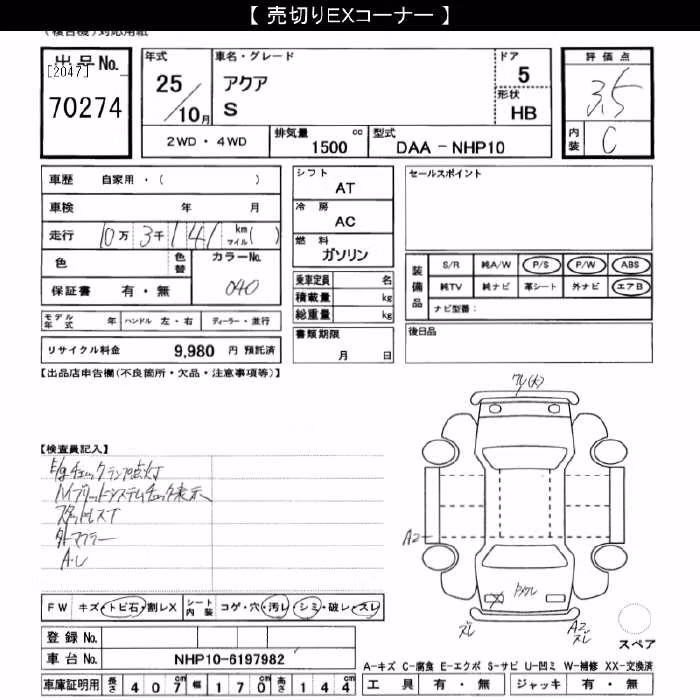 【 売切りEXコーナー 】
(複合機)対応用紙
出品No.
[2047]
70274
年式
25
/10月
車名・グレード
アクア
S
ドア
5
形状
HB
評価点
3.5
内装
C
2WD・4WD
排気量 cc
1500
型式
DAA-NHP10
車歴 自家用・( )
車検 年 月
走行 10万 3千 141 km マイル( )
色
色替
カラーNo.
040
保証書 有・無
モデル年式 年 ハンドル 左・右 ディーラー・並行
リサイクル料金 9,980 円 預託済
シフト
AT
冷房
AC
燃料
ガソリン
乗車定員 名
積載量 kg
総重量 kg
書類期限
月 日
セールスポイント
装備品
S/R 純A/W P/S P/W ABS
純TV 純ナビ 革シート 外ナビ エアB
ナビ型番:
後日品
【出品店申告欄(不良箇所・欠品・注意事項等)】
【検査員記入】
E/gチェックランプ点灯
ハイブリッドシステムチェック表示
スタッドレスT
外マフラー
A・し
ワレ(大)
A2
ズレ
A2
ズレ
スペア
FW キズ・トビ石・割レX シート内装 コゲ・穴・汚レ・シミ・破レ・スレ
登録No.
車台No. NHP10-6197982
車庫証明用 長さ 407 幅 170 高さ 144
A-キズ C-腐食 E-エクボ S-サビ U-凹ミ W-補修 XX-交換済
工具 有・無 ジャッキ 有・無